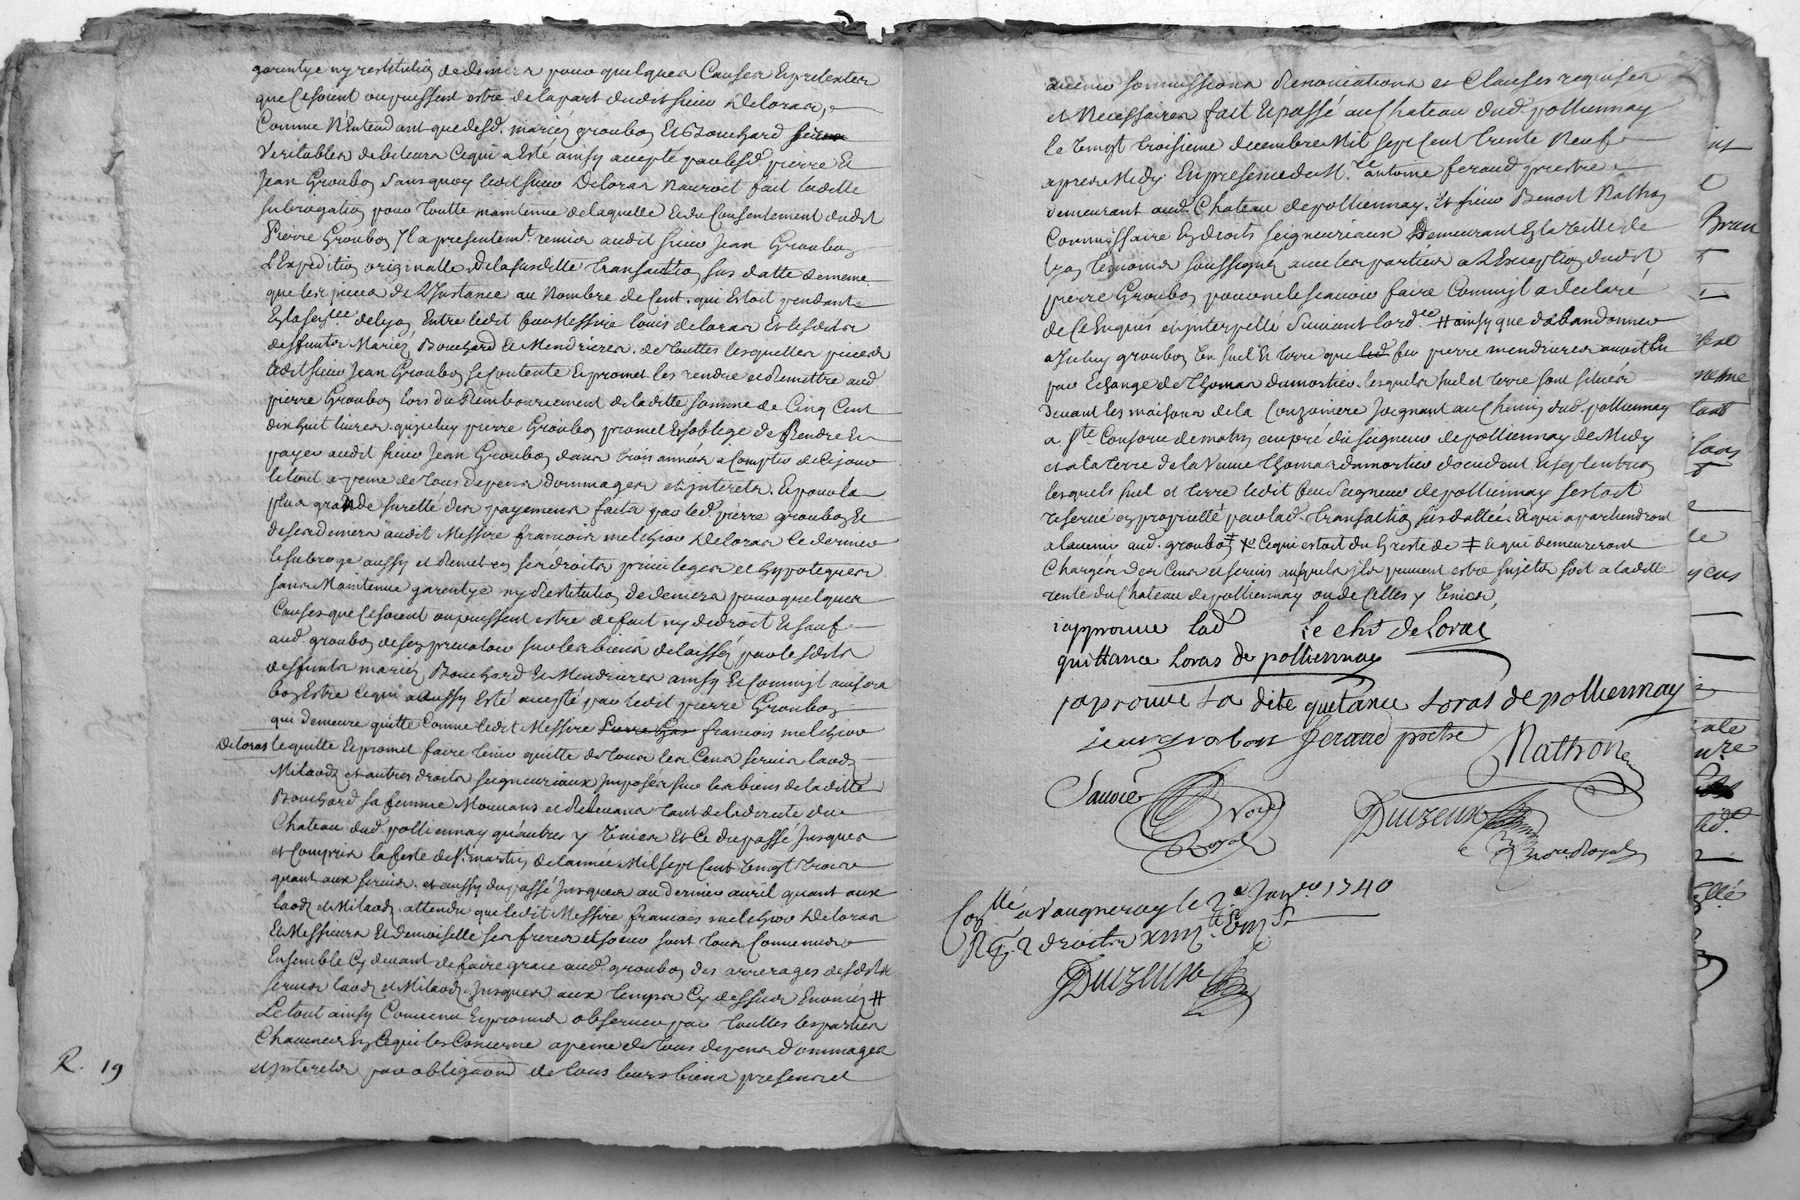 garentye ny restitution de deniers pour quelques Causes et pretextes
que ce soient ou puissent estre de la part dudit sieur Deloras,
Comme N'Entendant que lesd. mariez groubon et Bouchard
veritables debiteurs Ce qui a Esté ainsy accepté par lesd. pierre Et
Jean Groubon Sans quoy ledit sieur Deloras Nauroit fait ladite
subrogation pour toutte maintenue de laquelle et du Consentement dudit
Pierre Groubon Il a presentemt. remis audit sieur Jean Groubon
L'Expedition originalle de la susditte transaction sus datte de meme
que les pieces de L'Instance au Nombre de Cent. qui Estoit pendante
En la senlee. de lyon Entre ledit feu Messire louis deloras et lesdits
deffunts Mariez Bouchard et Mendrieres. de touttes lesquelles pieces
ledit sieur Jean Groubon se Contente et promet les rendre et Remettre aud.
pierre Groubon lors du Remboursement de ladite somme de Cinq Cent
dix huit livres qu'iceluy pierre Groubon promet et s'oblige de Rendre Et
payer audit sieur Jean Groubon dans trois années a Compter de Ce jour
le tout a peine de tous depens dommages et interets. Et pour la
plus grande surette des payemens faits par led. pierre groubon Et
de ses deniers audit Messire francois melchior Deloras Ce dernier
le subroge aussy et Remet en ses droits privileges et hypoteques
sans Maintenue garentye ny Restitution de deniers pour quelques
Causes que Ce soient ou puissent estre de fait ny de droit Et sauf
aud. groubon de se prevaloir sur les biens delaissés par lesdits
deffunts mariez Bouchard et Mendrieres ainsy Et Comm'il avisera
bon Estre Ce qui a aussy Esté accepté par ledit pierre Groubon
qui demeure quitte Comme ledit Messire francois melchior
Deloras le quitte Et promet faire tenir quitte de tous les Cens servis laodz
Milaodz et autres droits seigneuriaux Imposés sur les biens de ladite
Bouchard sa femme Mouvans et Relevans tant de la directe du
Chateau dud. polliennay qu'autres y Enies Et Ce du passé Jusques
et Compris la feste de St. martin de l'année Mil sept Cent vingt trois
quant aux servis. et aussy du passé Jusques au dernier avril quant aux
laodz et Milaodz. attendu que ledit Messire francois melchior Deloras
Et Messieurs Et demoiselle ses freres et soeur sont tous Convenus
Ensemble Cy devant de faire grace aud. groubon des arrerages desdits
servis laodz et Milaodz. Jusques aux temps Cy dessus Enoncés #
Le tout ainsy Convenu Et promis observer par touttes les parties
Chacune En Ce qui les Concerne a peine de tous depens d'ommages
et interets par obligaond de tous leurs biens presens et
R. 19
avenir soumissions Renonciations et Clauses requises
et Necessaires fait Et passé au Chateau dud. polliennay
le vingt troisieme decembre Mil sept Cent trente Neuf
apres Midy En presence de Mre. antoine feraud prestre
demeurant aud. Chateau de polliennay. Et sieur Benoit Nathon
Commissaire En droits seigneuriaux Demeurant En la Ville de
lyon temoins soussignez avec les parties a L'Exception dudit
pierre Groubon pour ne le scavoir faire Comm'il a declaré
de Ce Enquis et interpellé Suivant lordce. # ainsy que d'abandonner
a Iceluy groubon Un suel Et terre que feu pierre mendrieres avoit Eu
par Echange de thomas dumortier lesquels suel et terre sont situés
devant les maisons de la Conzoniere Joignant au Chemin dud. polliennay
a Ste Consorce de matin au pré du seigneur de polliennay de Midy
et a la terre de la Veuve thomas dumortier d'occident et septentrion
lesquels suel et terre ledit feu Seigneur de polliennay s'estoit
reservé en proprieté par lad. transaction sus dattée. Et qui apartiendront
a lavenir aud. groubon ‡ Ce qui estoit du Greste de ‡ Et qui demeureront
Chargés des Cens et servis auxquels ils peuvent estre sujets soit a ladite
rente du Chateau de polliennay ou de Celles y Enies,
japprouve lad Le chr de Loras
quittance Loras de polliennay
japrouve La dite quitance Loras de polliennay
jean grabon feraud prêtre Nathon
Sauvié Nore Royal
Duizeux nore. Royal
Conllé a Vaugneray le 2e. Janvr. 1740
R 2 droits xiiij tt
Duizeux